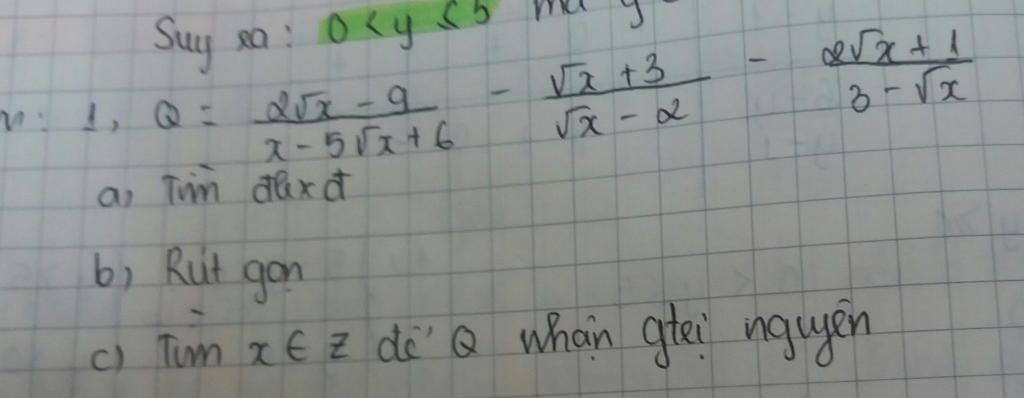 Suy ra: 0 < y ≤ 5 mà y
1, Q = (2√x - 9)/(x - 5√x + 6) - (√x + 3)/(√x - 2) - (2√x + 1)/(3 - √x)
a, Tìm đkxđ
b, Rút gọn
c) Tìm x ∈ Z để Q nhận gtrị nguyên